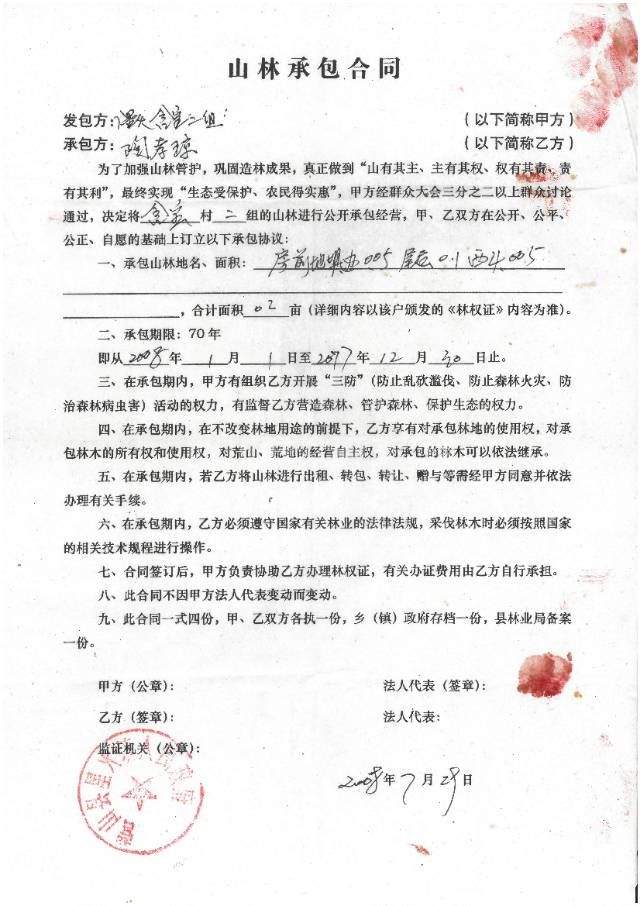 山林承包合同
发包方: 二组 (以下简称甲方)
承包方: (以下简称乙方)
为了加强山林管护，巩固造林成果，真正做到“山有其主、主有其权、权有其责、责
有其利”，最终实现“生态受保护、农民得实惠”，甲方经群众大会三分之二以上群众讨论
通过，决定将 村 二 组的山林进行公开承包经营，甲、乙双方在公开、公平、
公正、自愿的基础上订立以下承包协议：
一、承包山林地名、面积： 005 0.1 005
，合计面积 0.2 亩（详细内容以该户颁发的《林权证》内容为准）。
二、承包期限：70年
即从2008年 1 月 1 日至2077年 12 月 30 日止。
三、在承包期内，甲方有组织乙方开展“三防”（防止乱砍滥伐、防止森林火灾、防
治森林病虫害）活动的权力，有监督乙方营造森林、管护森林、保护生态的权力。
四、在承包期内，在不改变林地用途的前提下，乙方享有对承包林地的使用权，对承
包林木的所有权和使用权，对荒山、荒地的经营自主权，对承包的林木可以依法继承。
五、在承包期内，若乙方将山林进行出租、转包、转让、赠与等需经甲方同意并依法
办理有关手续。
六、在承包期内，乙方必须遵守国家有关林业的法律法规，采伐林木时必须按照国家
的相关技术规程进行操作。
七、合同签订后，甲方负责协助乙方办理林权证，有关办证费用由乙方自行承担。
八、此合同不因甲方法人代表变动而变动。
九、此合同一式四份，甲、乙双方各执一份，乡（镇）政府存档一份，县林业局备案
一份。
甲方（公章）： 法人代表（签章）：
乙方（签章）： 法人代表：
监证机关（公章）：
2008年 7 月 29 日